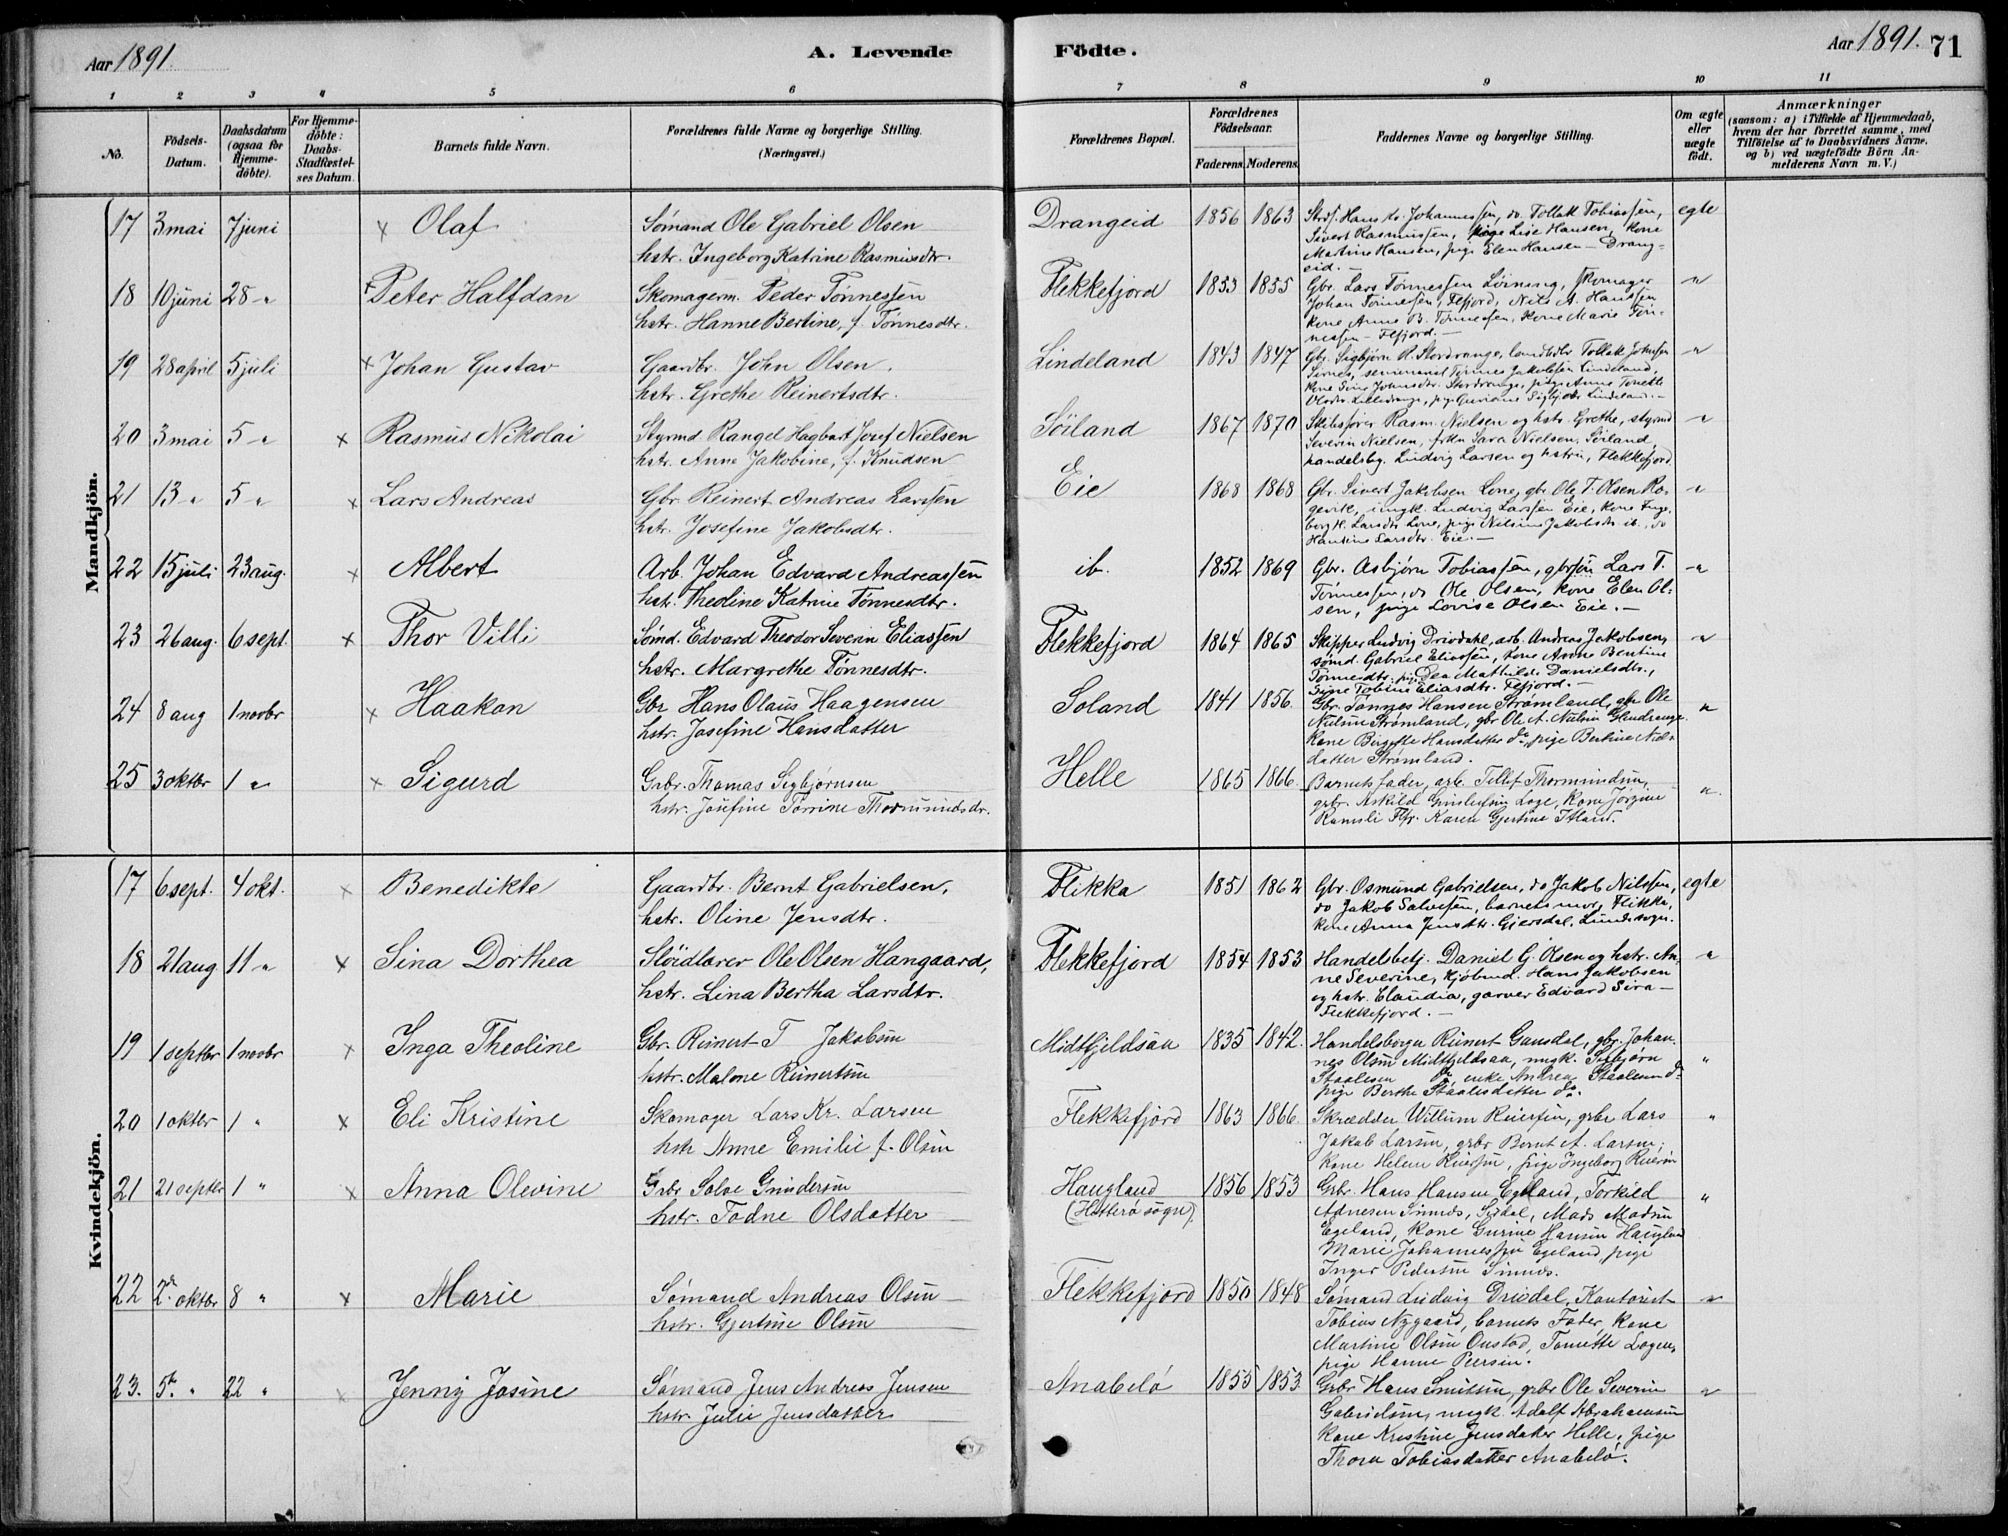 Aar 1891.
A. Levende
Födte.
Aar 1891.
71
1 2 3 4 5 6 7 8 9 10 11
No.
Födsels-Datum.
Daabsdatum (ogsaa for Hjemme-döbte).
For Hjemme-döbte: Daabs-Stadfæstel-ses Datum.
Barnets fulde Navn.
Forældrenes fulde Navne og borgerlige Stilling.
(Næringsvei.)
Forældrenes Bopæl.
Forældrenes Födselsaar.
Faderens. Moderens.
Faddernes Navne og borgerlige Stilling.
Om ægte eller uægte födt.
Anmærkninger
(saasom: a) i Tilfælde af Hjemmedaab,
hvem der har forrettet samme, med
Tilföielse af to Daabsvidners Navne.
og b) ved uægtefödte Börn An-
melderens Navn m. V.)
Mandkjön.
17 3 mai 7 juni x Olaf
Sømand Ole Gabriel Olsen
hstr. Ingeborg Katrine Rasmusdtr.
Drangeid 1856 1863
Hans Johannessen, do. Tollak Tobiassen,
Sivert Rasmussen, pige Lise Hansen, kone
Martine Hansen, pige Elen Hansen - Drang-
eid. -
egte
18 10 juni 28 - " x Peter Halfdan
Skomagerm. Peder Tønnessen
hstr. Hanne Bertine, f. Tønnesdtr.
Flekkefjord 1853 1855
Gbr. Lars Tønnessen Lørning, skomager
Johan Tønnessen, Fefjord, Nils A. Hanssen
kone Anne B. Tønnessen, kone Marie Tøn-
nessen - Flefjord. -
"
19 28 april 5 juli x Johan Gustav
Gaardbr. John Olsen.
hstr. Grethe Reinertsdtr.
Lindeland 1843 1847
Gbr. Sigbjørn R. Stordrange, Tollak Johnsen
Sirnes, seminarist Tønnes Jakobsen Lindeland,
kone Sine Johnsdtr. Stordrange, pige Anne Tonette
Lilledrange, pige Lindeland. -
"
20 3 mai 5 - " x Rasmus Nikolai
Styrmd Rangel Hagbart Josef Nielsen
hstr. Anne Jakobine, f. Knudsen
Søiland 1867 1870
Skibsfører Rasm. Nielsen og hstr. Grethe, styrmd
Severin Nielsen, frkn Sara Nielsen, Søiland,
handelsbg. Ludvig Larsen og hstru, Flekkefjord
"
21 13 " 5 " x Lars Andreas
Gbr Reinert Andreas Larssen
hstr. Josefine Jakobsdtr.
Eie 1868 1868
Gbr. Sivert Jakobsen Lone, gbr. Ole T. Olsen Ro-
gevik, ungk. Ludvig Larssen Eie, kone Inge-
borg K. Larsdtr Lone, pige Nilsine Jakobsdtr ib., do
Hantine Larsdtr. Eie. -
"
22 15 juli 23 aug. x Albert
Arb. Johan Edvard Andreassen
hstr. Theoline Katrine Tønnesdtr.
ib. 1852 1869
Gbr. Asbjørn Tobiassen, gbrsøn Lars T.
Tønnessen, do Ole Olsen, kone Elen Ol-
sen, pige Lovise Olsen Eie. -
"
23 26 aug. 6 sept. x Thor Villi
Sømd. Edvard Theodor Severin Eliassen
hstr. Margrethe Tønnesdtr.
Flekkefjord 1864 1865
Skipper Ludvig Drivdahl, arb. Andreas Jakobsen,
sømd. Gabriel Eliassen, kone Anne Bentine
Tønnesdtr, pig. Dea Mathilde Danielsdtr.,
Sine Tobine Eliasdtr. Fefjord. -
"
24 8 aug 1 novbr x Haakon
Gbr Hans Olaus Haagensen
hstr. Josefine Hansdatter
Soland 1841 1856
Gbr. Tønnes Hansen Strømland, gbr Ole
Nielsen Strømland, gbr Ole A. Nielsen Hendrange.
Kone Birgitte Hansdatter do, pige Bertine Niels-
datter Strømland.
"
25 3 oktbr 1 " x Sigurd
Grbr. Thomas Sigbjørnsen
hstr. Josefine Torrine Thormundsdr.
Helle 1865 1866
Barnets fader, arb. Tellef Thormundsen,
grbr. Askild Loge, kone Jørgine
Ramsli Flfj. Karen Gjertine Itland.
"
Kvindekjön.
17 6 sept. 4 okt. x Benedikte
Gaardbr. Bernt Gabrielsen,
hstr. Oline Jensdtr.
Flikka 1851 1862
Gbr. Osmund Gabrielsen, do Jakob Nilssen,
do Jakob Salvesen, barnets mor, Flikka,
kone Anna Jensdtr. Gjersdal, Lunds sogn.
egte
18 21 aug 11 - " x Sina Dorthea
Sløidlærer Ole Olsen Hangaard,
hstr. Lina Bertha Larsdtr.
Flekkefjord 1854 1853
Handelsbetj. Daniel G. Olsen og hstr. An-
ne Severine, kjøbmd. Hans Jakobsen
og hstr. Claudia, garver Edvard Sira -
Flekkefjord. -
"
19 1 septbr 1 novbr x Inga Theoline
Gbr. Reinert T Jakobsen
hstr. Malene Reinertsen
Midtfjeldsaa 1835 1842
Handelsborger Reinert Gausdal, gbr. Johan-
nes Olsen Midtfjeldsaa, ungk. Sigbjørn
Staalesen do, enke Andrea Staalesen do
pige Berthe Staalesdatter do.
"
20 1 oktbr 1 " x Eli Kristine
Skomager Lars Kr. Larsen
hstr Anne Emilie f. Olsen
Flekkefjord 1863 1866
Skrædder Willum Reiersen, grbr Lars
Jakob Larsen, grbr Bernt A. Larsen,
Kone Helene Reiersen, pige Ingeborg Reiersen
"
21 21 septbr 1 " x Anna Olevine
Grbr Salve Gundersen
hstr. Todne Olsdatter
Haugland
(Hitterø sogn).
1856 1853
Grbr. Hans Hansen Egeland, Torkild
Adnesen Sinnes, Mads Madsen
Egeland, kone Gurine Hansen Haugland
Marie Johannessen Egeland, pige
Inger Pedersen Sinnes.
"
22 2 oktbr 8 " x Marie
Sømand Andreas Olsen
hstr. Gjertine Olsen
Flekkefjord 1850 1848
Sømand Ludvig Drivdal, Kontorist
Tobias Nygaard, barnets Fader, kone
Martine Olsen Onstad, Tomette Logen,
pige Hanne Peersen.
"
23. 5 " 22 " x Jenny Josine
Sømand Jens Andreas Jensen
hstr. Julie Jensdatter
Anabelø 1855 1853
Grbr Hans Smitsen, grbr Ole Severin
Gabrielsen, ungk. Adolf Abrahamsen
Kone Kristine Jensdatter Helle, pige
Thora Tobiasdatter Anabelø.
"